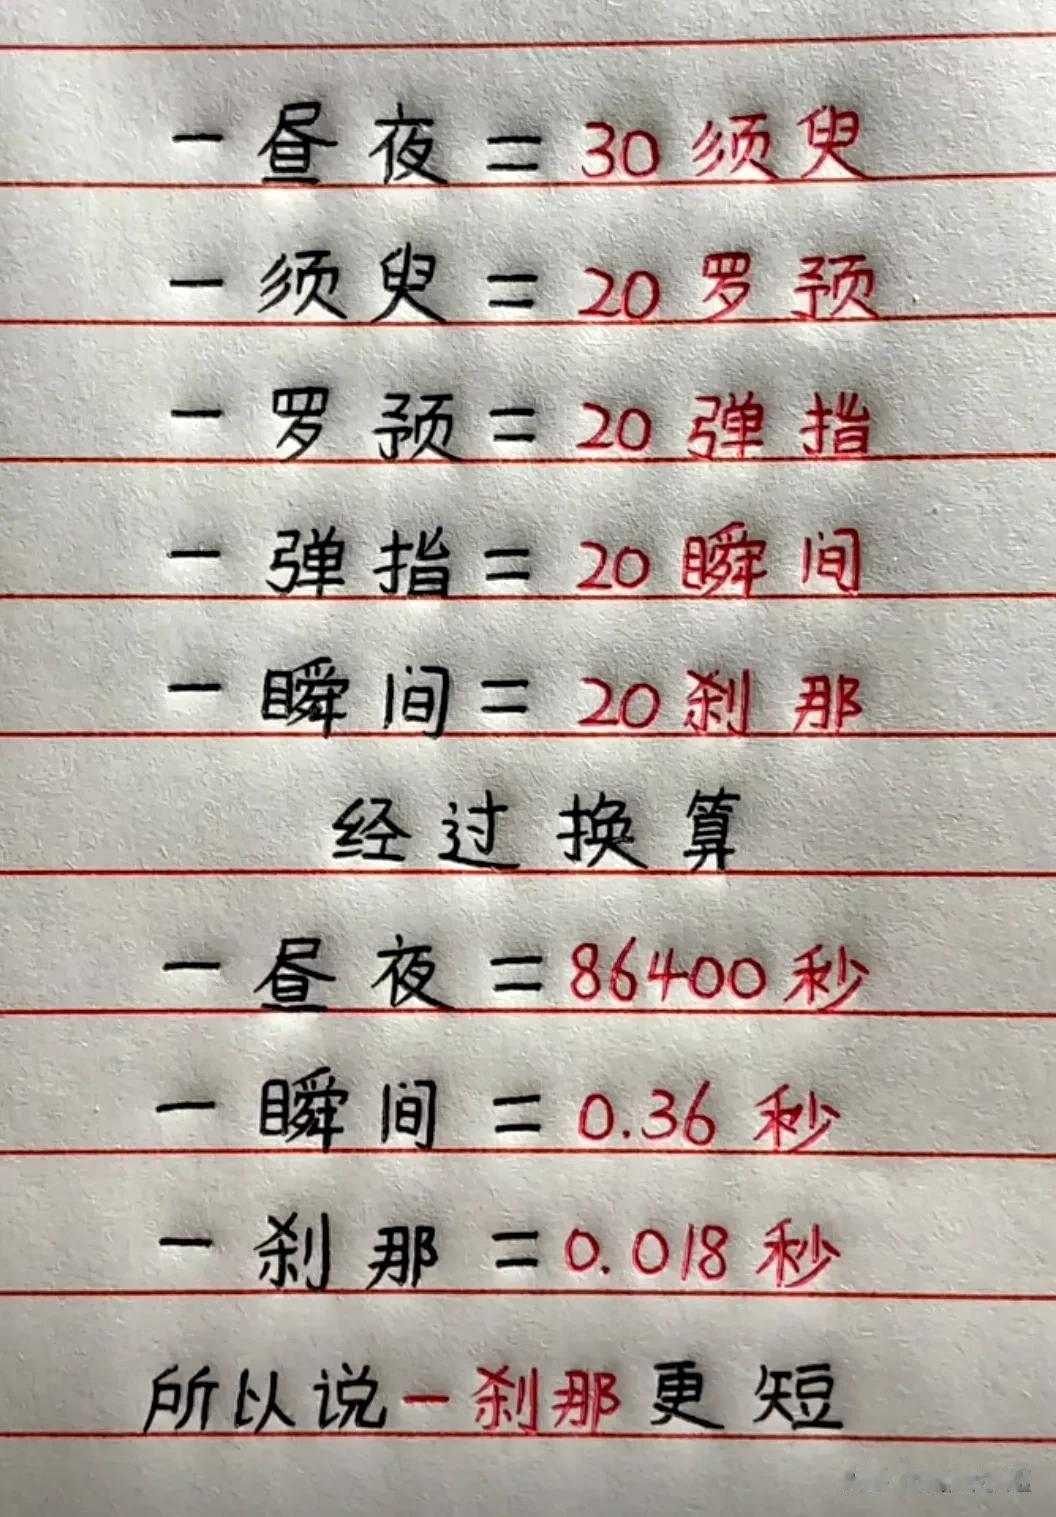 一昼夜=30须臾
一须臾=20罗预
一罗预=20弹指
一弹指=20瞬间
一瞬间=20刹那
经过换算
一昼夜=86400秒
一瞬间=0.36秒
一刹那=0.018秒
所以说一刹那更短